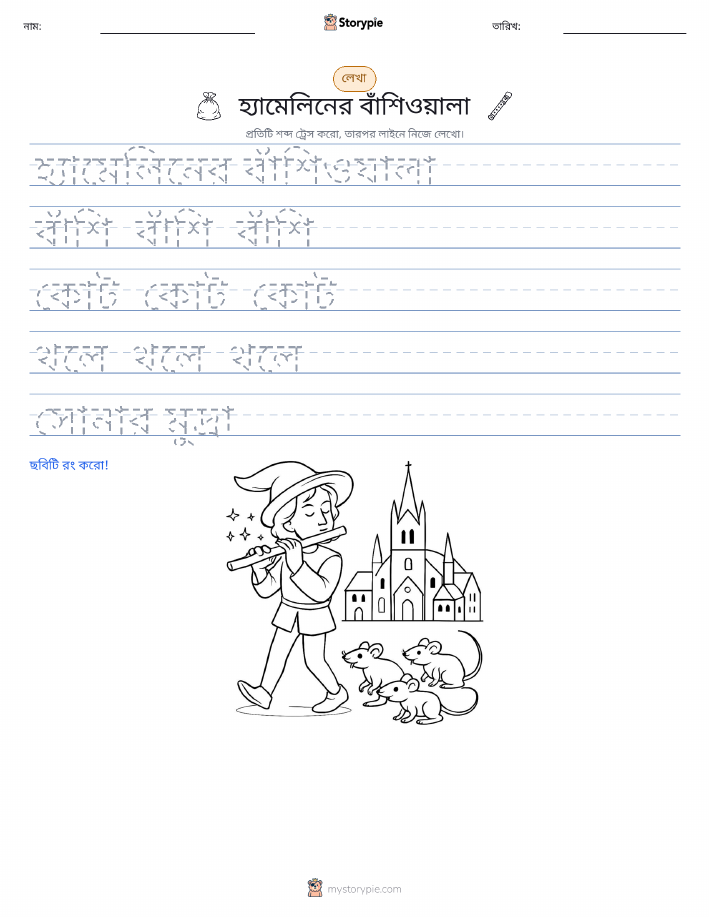 নাম:
Storypie
তারিখ:
লেখা
হ্যামেলিনের বাঁশিওয়ালা
প্রতিটি শব্দ ট্রেস করো, তারপর লাইনে নিজে লেখো।
হ্যামেলিনের বাঁশিওয়ালা
বাঁশি বাঁশি বাঁশি
কোট কোট কোট
থলে থলে থলে
সোনার মুদ্রা
ছবিটি রং করো!
mystorypie.com